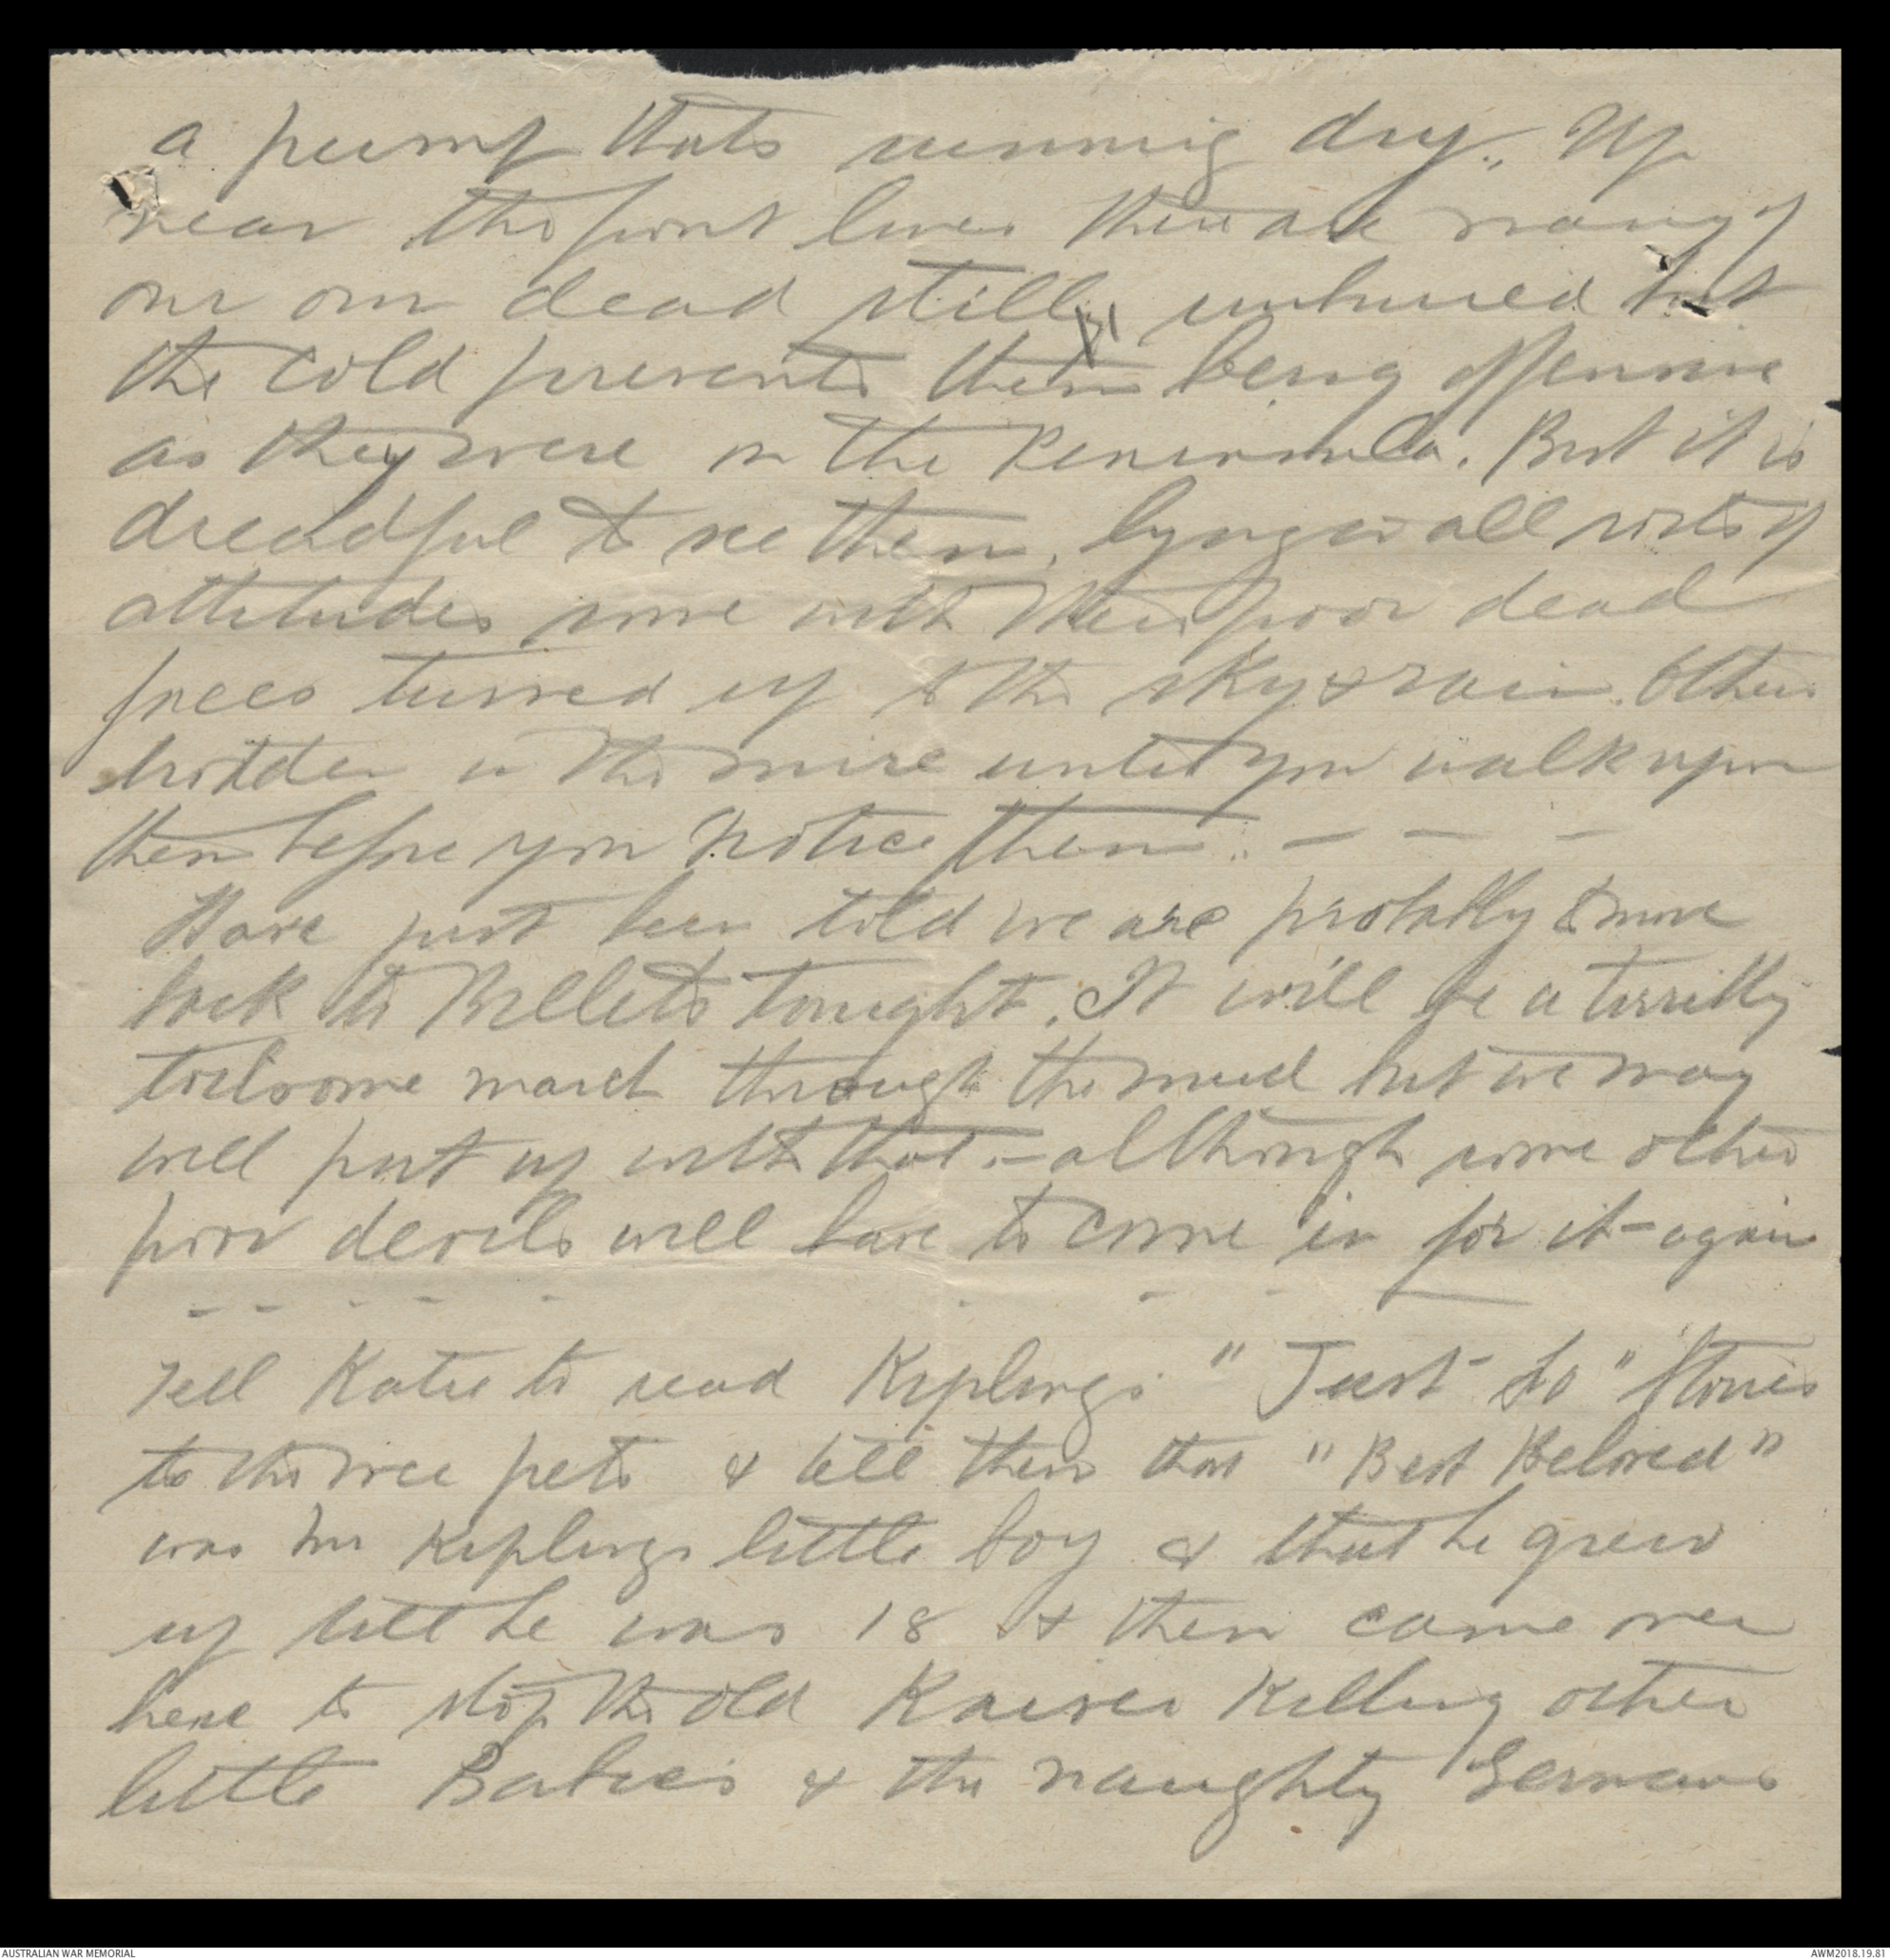 a pump thats running dry. Up
near the front lines there are many of
our own dead still unburied but
the cold prevents them being offensive
as they were on the Peninsula. But it is
dreadful to see them, lying in all sorts of
attitudes some with their poor dead
faces turned up to the sky & rain. Others
hidden in the mire until you walk upon
them before you notice them. - - -
Have just been told we are probably to move
back to Billets tonight. It will be a terribly
toilsome march through the mud but we may
well put up with that. - although some other
poor devils will have to come in for it - again
- - - - - - - - -
Tell Katie to read Kiplings " Just So " Stories
to the wee pets & tell them that " Best Beloved "
was Mr Kiplings little boy & that he grew
up till he was 18 & then came over
here to stop the old Kaiser Killing other
little Babies & the naughty Germans
AUSTRALIAN WAR MEMORIAL
AWM2018.19.81